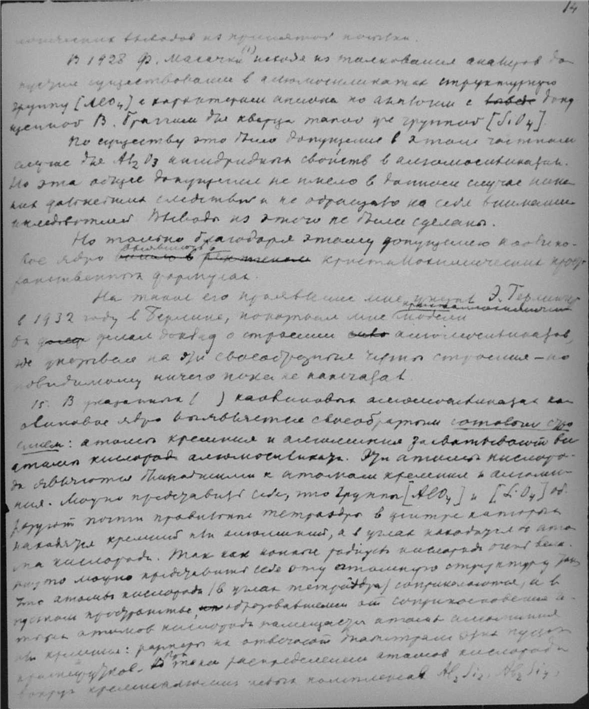 14
логических выводов из принятой посылки.
В 1928 Ф. Мачачки (1) исходя из толкования анализов до-
пустил существование в алюмосиликатах структурную
группу [AlO4] с характером аниона по аналогии с допу-
щенной В. Браггом для кварца такой же группой [SiO4]
По существу это было допущение в этом частном
случае для Al2O3 ангидридных свойств в алюмосиликатах.
Но эта общее допущение не имело в данном случае ника-
ких дальнейших следствий и не обращало на себя внимания
исследователей. Выводы из этого не были сделаны.
Но только благодаря этому допущению каолино-
вое ядро выявилось в кристаллохимических прост-
ранственных формулах.
На такие его проявление мне указал Э. Герлингер
в 1932 году в Берлине, показывая мне кристаллохимические модели
Он делал доклад о строении алюмосиликатов,
где указывал на эти своеобразные черты строения - по
видимому ничего пока не напечатал
15. В указанных ( ) каолиновых алюмосиликатах као-
линовое ядро выявляется своеобразным сотовым стро-
ением: атомы кремния и алюминия захватывают все
атомы кислорода алюмосиликата. Эти атомы кислоро-
да являются ближайшими к атомам кремния и алюми-
ния. Можно представить себе, что группы [AlO4] и [SiO4] об-
разуют почти правильные тетраэдры в центре которых
находится кремний или алюминий, а в углах находится 4 ато-
ма кислорода. Так как ионный радиус кислорода очень вели-
к, то можно представить себе эту атомную структуру так,
что атомы кислорода (в углах тетраэдра) соприкасаются, а в
пустом пространстве, образовавшемся при соприкосновении
атомов кислорода помещается атом алюминия
или кремния: размеры их отвечают диаметрам этих пустых
промежутков. При таком распределении атомов кислорода
вокруг комплексов Al2Si2, Al2Si4,